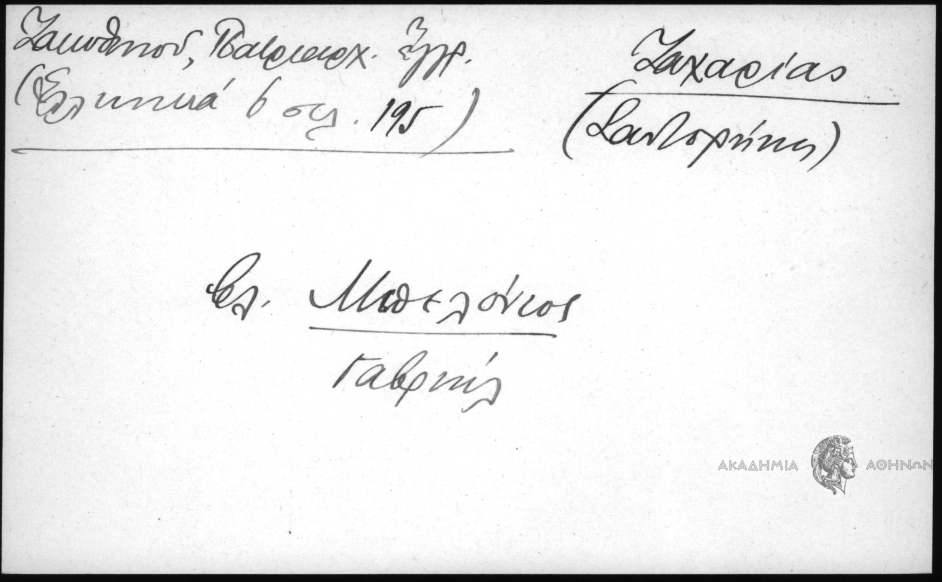 Ζακυθηνοῦ, Πατριαρχ. Ἔγγρ.
(Ἑλληνικά 6 σελ. 195)
Ζαχαρίας
(Σαντορήνης)
Βλ. Μπελόνιος
Γαβριήλ
ΑΚΑΔΗΜΙΑ ΑΘΗΝΩΝ